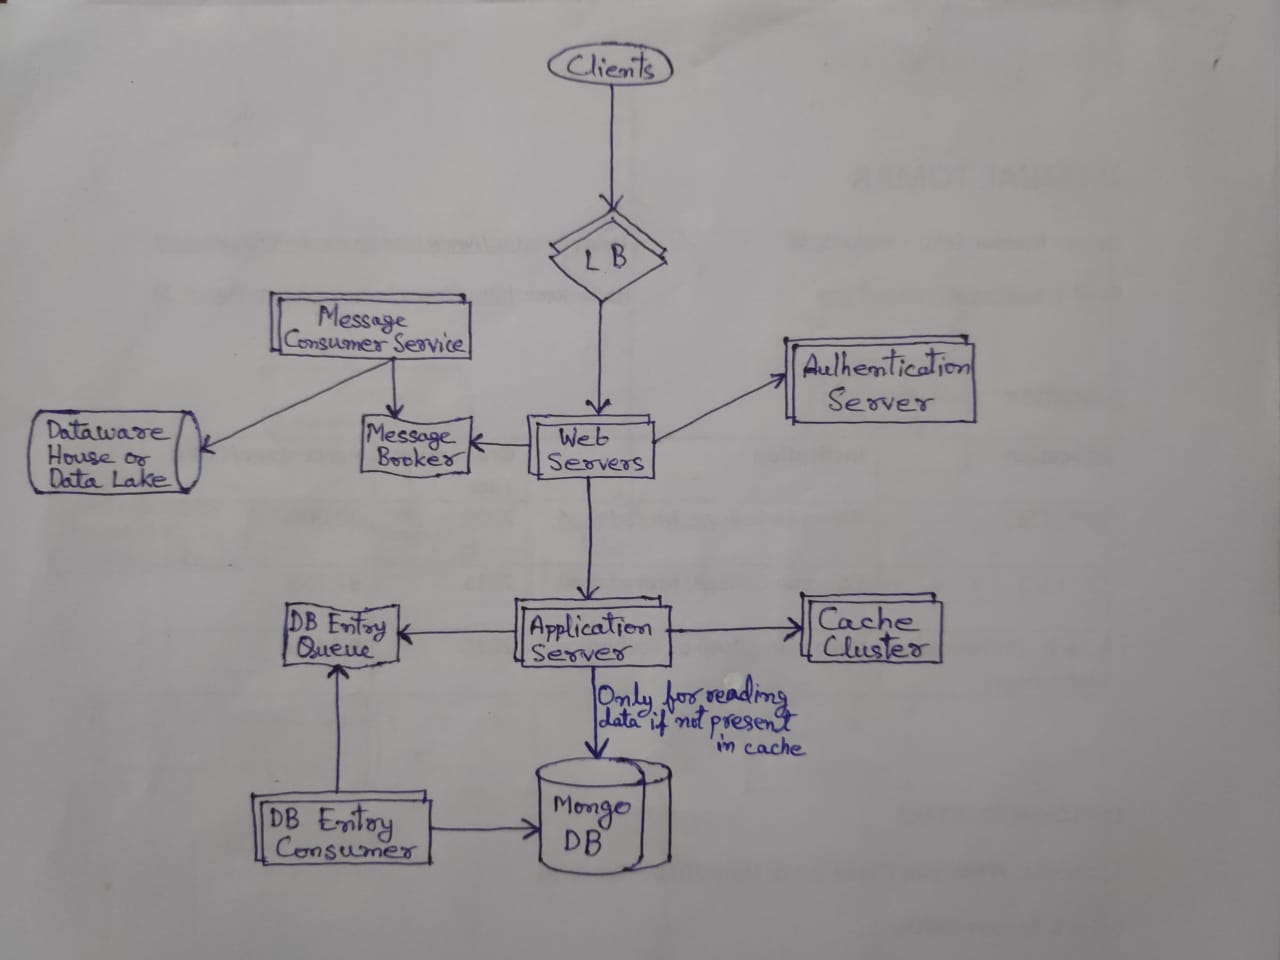 Clients
L B
Message
Consumer Service
Authentication
Server
Dataware
House or
Data Lake
Message
Broker
Web
Servers
DB Entry
Queue
Application
Server
Cache
Cluster
Only for reading
data if not present
in cache
DB Entry
Consumer
Mongo
DB